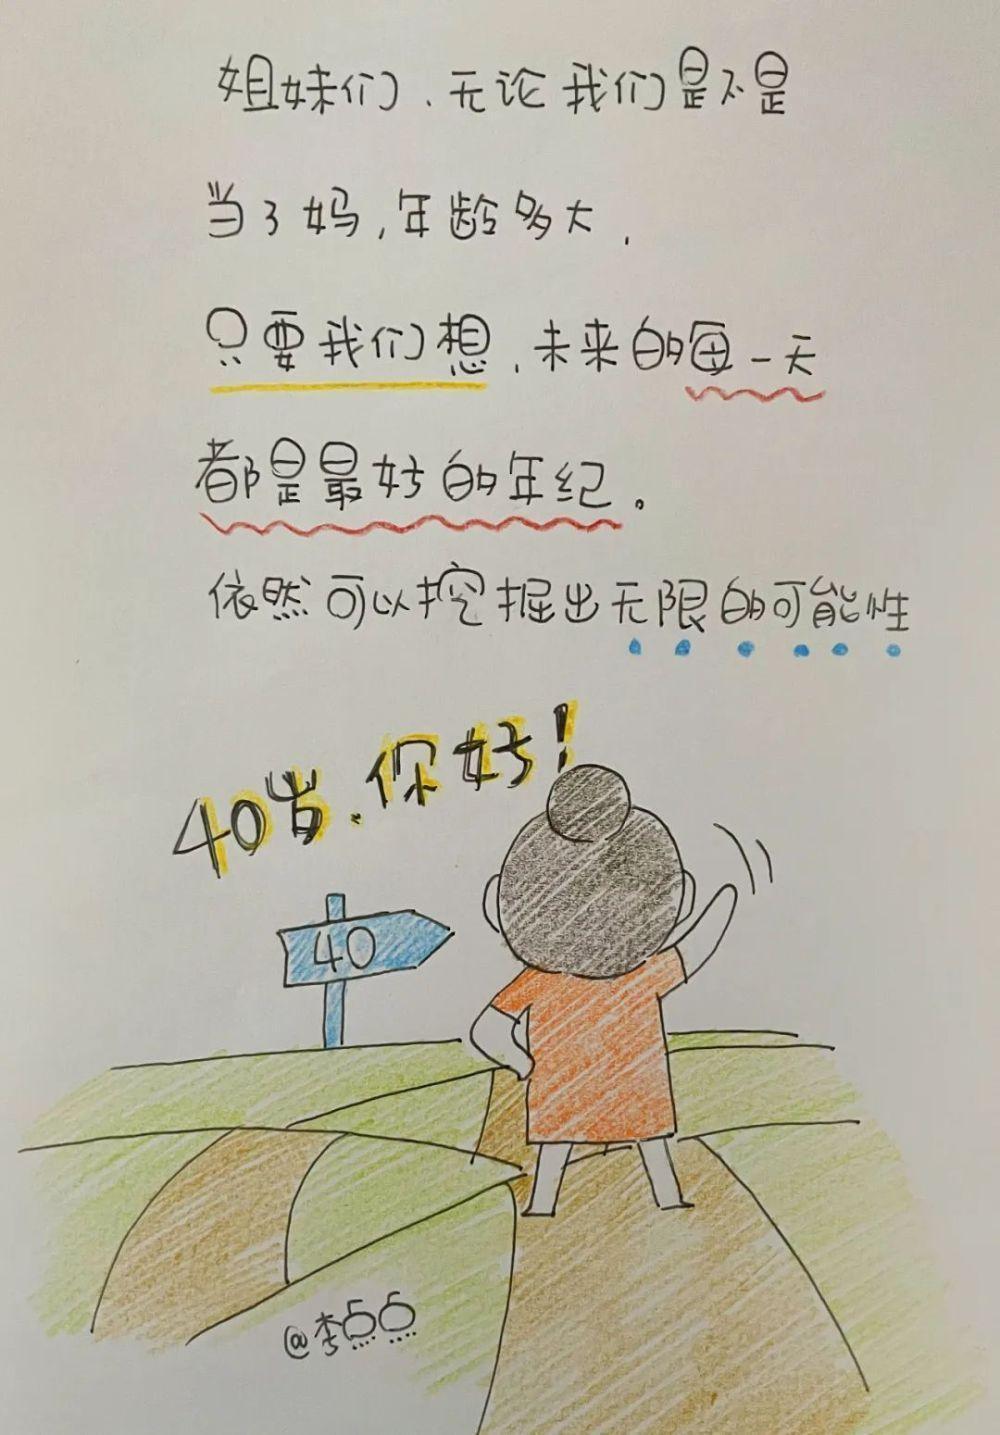 姐妹们、无论我们是不是
当了妈,年龄多大,
只要我们想,未来的每一天
都是最好的年纪。
依然可以挖掘出无限的可能性
40岁.你好!
40
@李点点